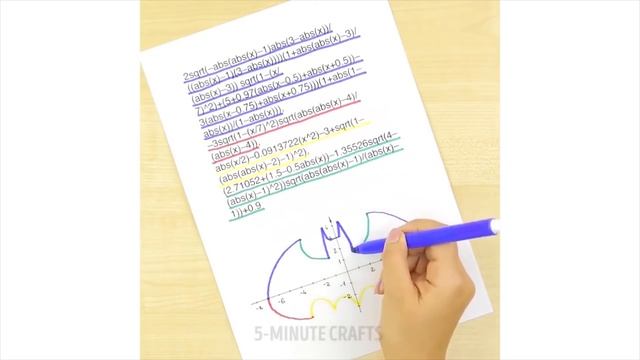 2sqrt(-abs(abs(x)-1)abs(3-abs(x))/
((abs(x)-1)(3-abs(x))))(1+abs(abs(x)-3)/
(abs(x)-3)) sqrt(1-(x/
7)^2)+(5+0.97(abs(x-0.5)+abs(x+0.5))-
3(abs(x-0.75)+abs(x+0.75)))(1+abs(1-
abs(x))/(1-abs(x))).
-3sqrt(1-(x/7)^2)sqrt(abs(abs(x)-4)/
(abs(x)-4)).
abs(x/2)-0.0913722(x^2)-3+sqrt(1-
(abs(abs(x)-2)-1)^2).
(2.71052+(1.5-0.5abs(x))-1.35526sqrt(4-
(abs(x)-1)^2))sqrt(abs(abs(x)-1)/(abs(x)-
1))+0.9
2
1
-8 -6 -4 -2 2
-2
5-MINUTE CRAFTS